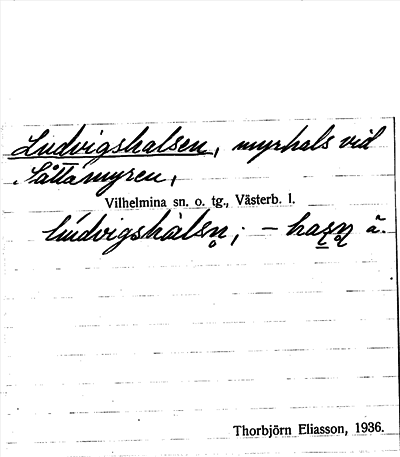 Ludvigshalsen, myrhals vid
Såttamyren,
Vilhelmina sn. o. tg., Västerb. l.
lúdvigshàlsn̥; – hasn̥ ã.
Thorbjörn Eliasson, 1936.